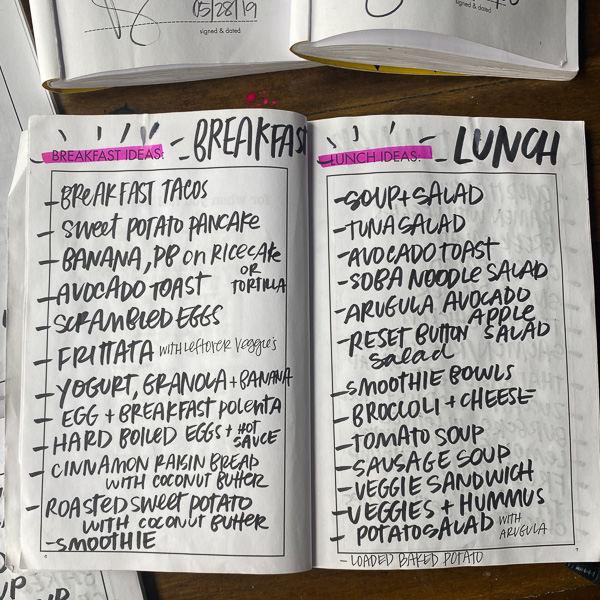 05/28/19
signed & dated
signed & dated
BREAKFAST IDEAS:
BREAKFAST
- BREAKFAST TACOS
- SWEET POTATO PANCAKE
- BANANA, PB ON RICECAKE
OR
TORTILLA
- AVOCADO TOAST
- SCRAMBLED EGGS
- FRITTATA WITH LEFTOVER VEGGIE'S
- YOGURT, GRANOLA + BANANA
- EGG + BREAKFAST POLENTA
- HARD BOILED EGGS + HOT
SAUCE
- CINNAMON RAISIN BREAD
WITH COCONUT BUTTER
- ROASTED SWEET POTATO
WITH COCONUT BUTTER
- SMOOTHIE
6
LUNCH IDEAS:
LUNCH
- SOUP + SALAD
- TUNA SALAD
- AVOCADO TOAST
- SOBA NOODLE SALAD
- ARUGULA AVOCADO
APPLE
SALAD
- RESET BUTTON
Salad
- SMOOTHIE BOWLS
- BROCCOLI + CHEESE
- TOMATO SOUP
- SAUSAGE SOUP
- VEGGIE SANDWICH
- VEGGIES + HUMMUS
- POTATO SALAD WITH
ARUGULA
- LOADED BAKED POTATO
7